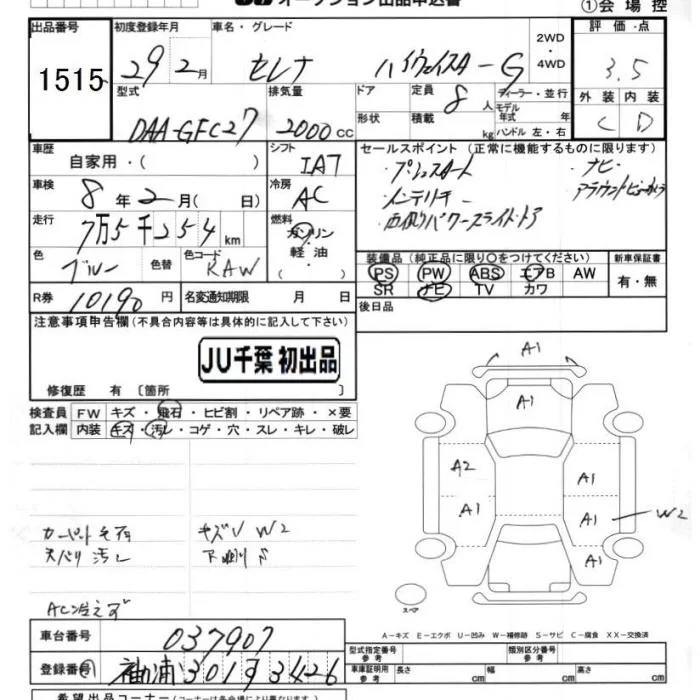 オークション出品申込書
①会 場 控
出品番号 初度登録年月 車名・グレード 2WD ・ 4WD 評 価・点
1515 29年2月 セレナ ハイウェイスターG 3.5
型式 排気量 ドア 定員 8人 ディーラー・並行 モデル 外 装 内 装
DAA-GFC27 2000cc 形状 積載 kg 年式 年 ハンドル 左・右 C D
車歴 シフト セールスポイント (正常に機能するものに限ります)
自家用・( ) IAT ・プッシュスタート ・ナビ
車検 冷房 ・インテリキー ・アラウンドビューカメラ
8年2月( 日) AC ・両側パワースライドドア
走行 燃料
7万5千254km ガソリン・軽 油・
色 色替 色コード 装備品(純正品に限り○をつけてください) 新車保証書
ブルー RAW PS PW ABS エアB AW 有・無
SR ナビ TV カワ
R券 10190円 名変通知期限 月 日 後日品
注意事項申告欄(不具合内容等は具体的に記入して下さい)
JU千葉 初出品
修復歴 有〔箇所 〕
検査員 FW キズ・飛石・ヒビ割・リペア跡・×要
記入欄 内装 キズ・汚レ・コゲ・穴・スレ・キレ・破レ
A1
A1
A2 A1
A1 A1 W2
A1
カーペット 毛羽 キズU W2
天バリ 汚レ 下廻りS
AC冷えず
スペア
A-キズ E-エクボ U-凹み W-補修跡 S-サビ C-腐食 XX-交換済
車台番号 037907
登録番号 袖ヶ浦301 93426
型式指定番号 参考 類別区分番号 参考
車庫証明用 参考 長さ cm 幅 cm 高さ cm
希望出品コーナー(コーナーは各会場により異なります)